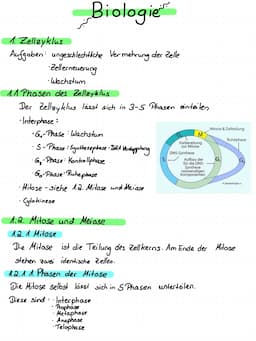 Biologie
1. Zellzyklus
Aufgaben: ungeschlechtliche Vermehrung der Zelle
· Zellerneuerung
· Wachstum
1.1 Phasen des Zellzyklus
Der Zellzyklus lässt sich in 3-5 Phasen einteilen
· Interphase:
· G₁-Phase: Wachstum
· S-Phase: Synthesephase
· G₂-Phase: Kontrollphase
· G₀-Phase: Ruhephase
· Mitose - siehe 1.2. Mitose und Meiose
· Cytokinese
Mitose & Zellteilung
M
Vorbereitung zur Mitose
DNA-Synthese
Ruhephase
Aufbau der für die DNS-Synthese notwendigen Komponenten
G₁
G₀
S
1.2. Mitose und Meiose
1.2.1 Mitose
Die Mitose ist die Teilung des Zellkerns. Am Ende der Mitose
stehen zwei identische Zellen.
1.2.1.1 Phasen der Mitose
Die Mitose selbst lässt sich in 5 Phasen unterteilen.
Diese sind: · Interphase
· Prophase
· Metaphase
· Anaphase
· Telophase